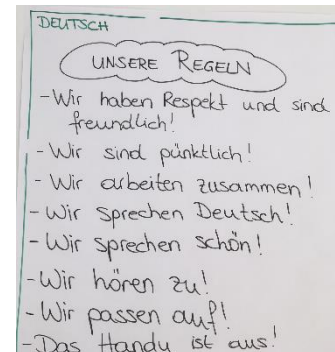 DEUTSCH
UNSERE REGELN
- Wir haben Respekt und sind
freundlich!
- Wir sind pünktlich!
- Wir arbeiten zusammen!
- Wir sprechen Deutsch!
- Wir sprechen schön!
- Wir hören zu!
- Wir passen auf!
- Das Handy ist aus!